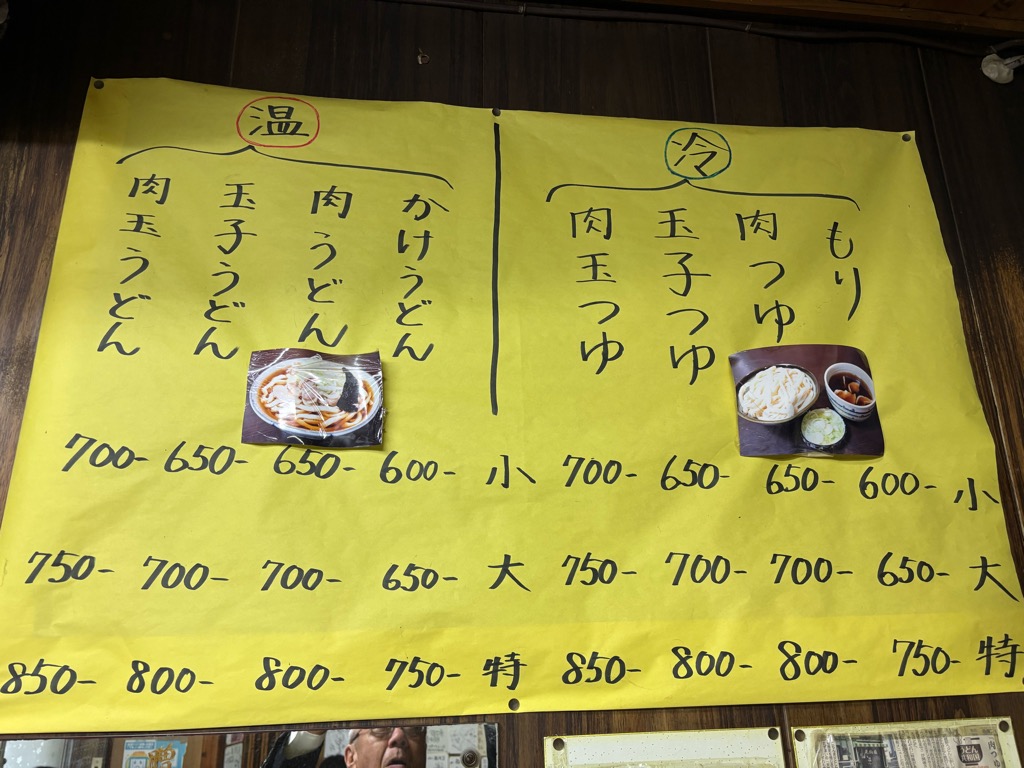 冷
もり
肉つゆ
玉子つゆ
肉玉つゆ
小 600- 650- 650- 700-
大 650- 700- 700- 750-
特 750- 800- 800- 850-
温
かけうどん
肉うどん
玉子うどん
肉玉うどん
小 600- 650- 650- 700-
大 650- 700- 700- 750-
特 750- 800- 800- 850-
うどん
肉つゆ